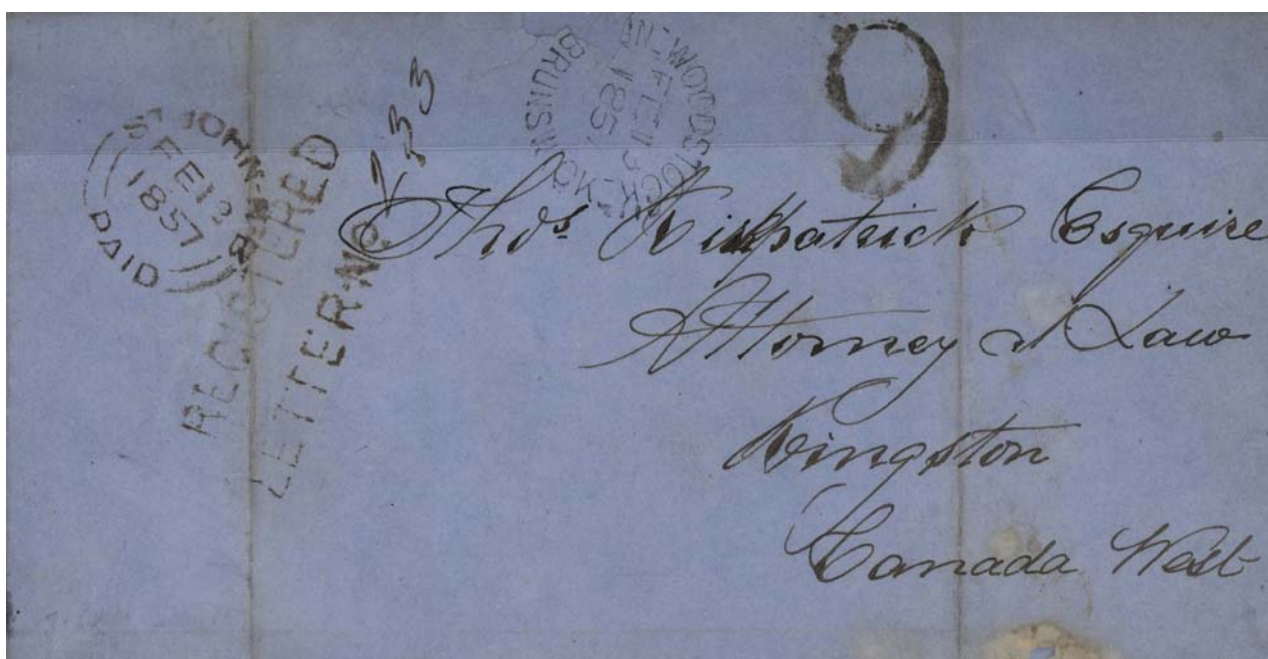 ST JOHN-N.B
FE 12
1857
PAID
REGISTERED
LETTER No.
WOODSTOCK
BRUNSWICK
FE
185
9
Thos Kirkpatrick Esquire
Attorney at Law
Kingston
Canada West